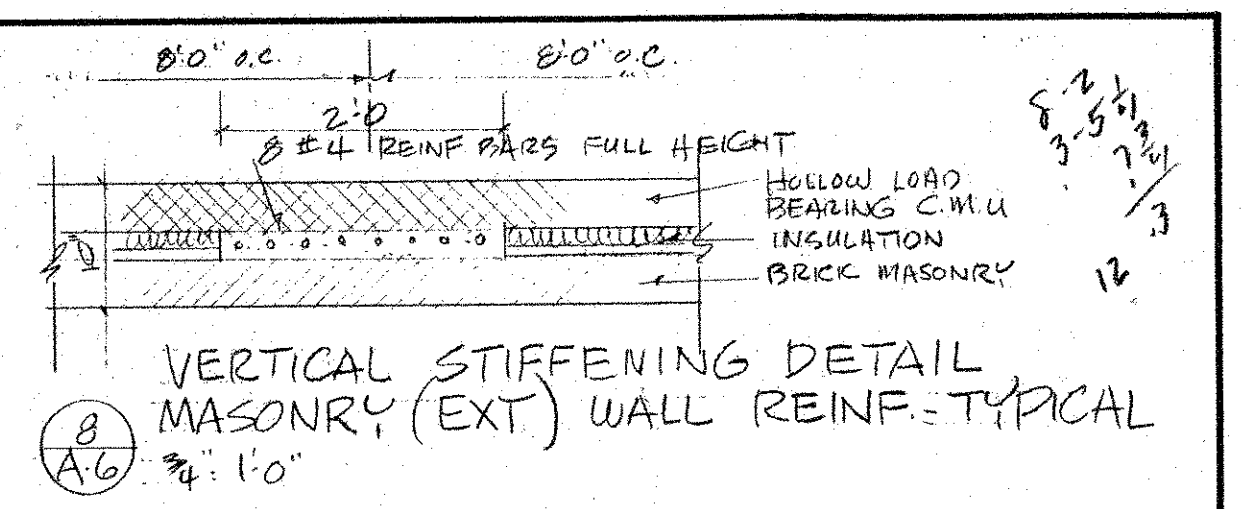 8'0" o.c. 8'0" o.c.
2'0
8 #4 REINF BARS FULL HEIGHT
HOLLOW LOAD
BEARING C.M.U
INSULATION
BRICK MASONRY
12
VERTICAL STIFFENING DETAIL
MASONRY (EXT) WALL REINF. TYPICAL
8
A-6
3/4": 1'-0"